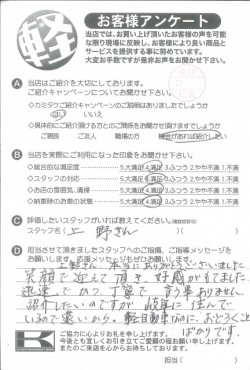 軽
お客様アンケート
当店では、お買い上げ頂いたお客様の声を可能
な限り現場に反映し、お客様により良い商品と
サービスを提供する事に努めています。
大変お手数ですが是非お声をお聞かせ下さい。
A 当店はご紹介を大切にしております。
ご紹介キャンペーンについてお聞かせ下さい。
◇カミタワご紹介キャンペーンのご説明はありましたでしょうか
はい いいえ
◇具体的にご紹介頂ける方とのご関係をお聞かせ頂けますでしょうか
ご親族 ご友人 職場の方
B 当店を実際にご利用になった印象をお聞かせ下さい。
◇総合的な満足度 5.大満足 4.満足 3.ふつう 2.やや不満 1.不満
◇スタッフの対応 5.大満足 4.満足 3.ふつう 2.やや不満 1.不満
◇お店の雰囲気、清掃 5.大満足 4.満足 3.ふつう 2.やや不満 1.不満
◇納車時のお車の状態 5.大満足 4.満足 3.ふつう 2.やや不満 1.不満
C 評価したいスタッフがいれば教えてください。
スタッフ名( 上野さん )
D 担当させて頂きましたスタッフへのご指摘、ご指導、応援メッセージを
お願いします。応援メッセージもお願いします。
上野さん 本当にありがとうございました。
笑顔で迎えて頂き、好感がもてました。
迅速でかつ丁寧で何う事ありません。
紹介したいのですが岐阜に住んで
いるので遠いから。軽自動車なのに、おどろくこと
ばかりです。
ご協力に心よりお礼を申し上げます。
今後とも宜しくお引き立てご愛顧の程お願い申し上げます。
またのご来店を心からお待ちしております。
担当( )